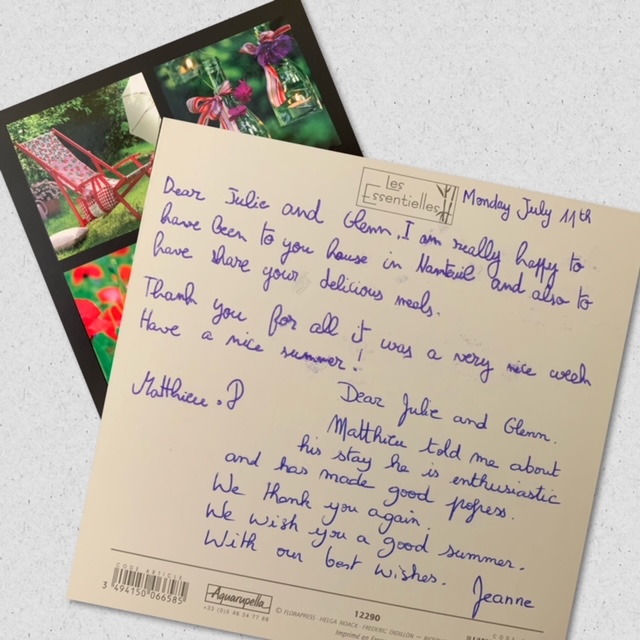 Les
Essentielles
Monday July 11th
Dear Julie and Glenn, I am really happy to
have been to you house in Nanteuil and also to
have share your delicious meals.
Thank you for all it was a very nice week
Have a nice summer!
Matthieu . P
Dear Julie and Glenn.
Matthieu told me about
his stay he is enthusiastic
and has made good progress.
We thank you again.
We wish you a good summer.
With our best wishes.
Jeanne
CODE ARTICLE
3 494150 066585
Aquarupella
+33 (0)5 46 34 71 68
© FLORAPRESS - HELGA NOACK - FREDERIC DIDILLON —
12290
Imprimé en